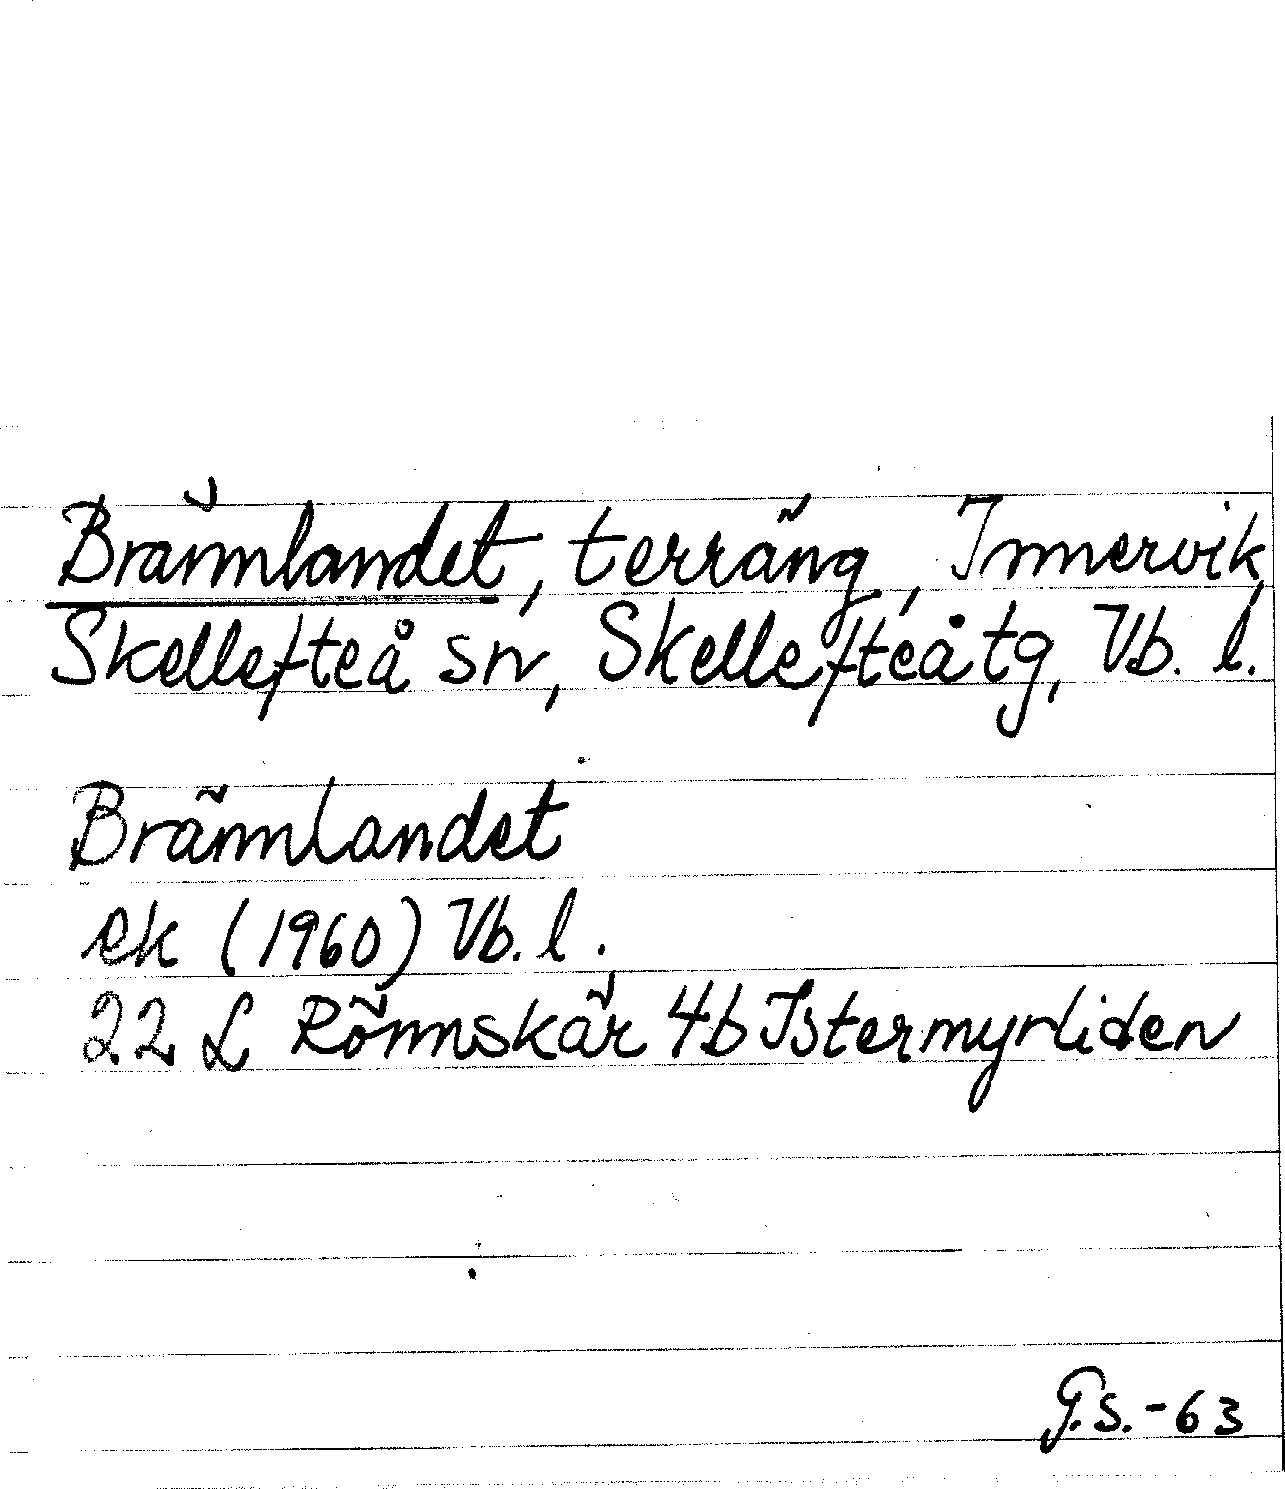 Brännlandet, terräng, Innervik,
Skellefteå sn, Skellefteå tg, Vb. l.
Brännlandet
ek (1960) Vb. l.
22 L Rönnskär 4b Istermyrliden
G.S.-63